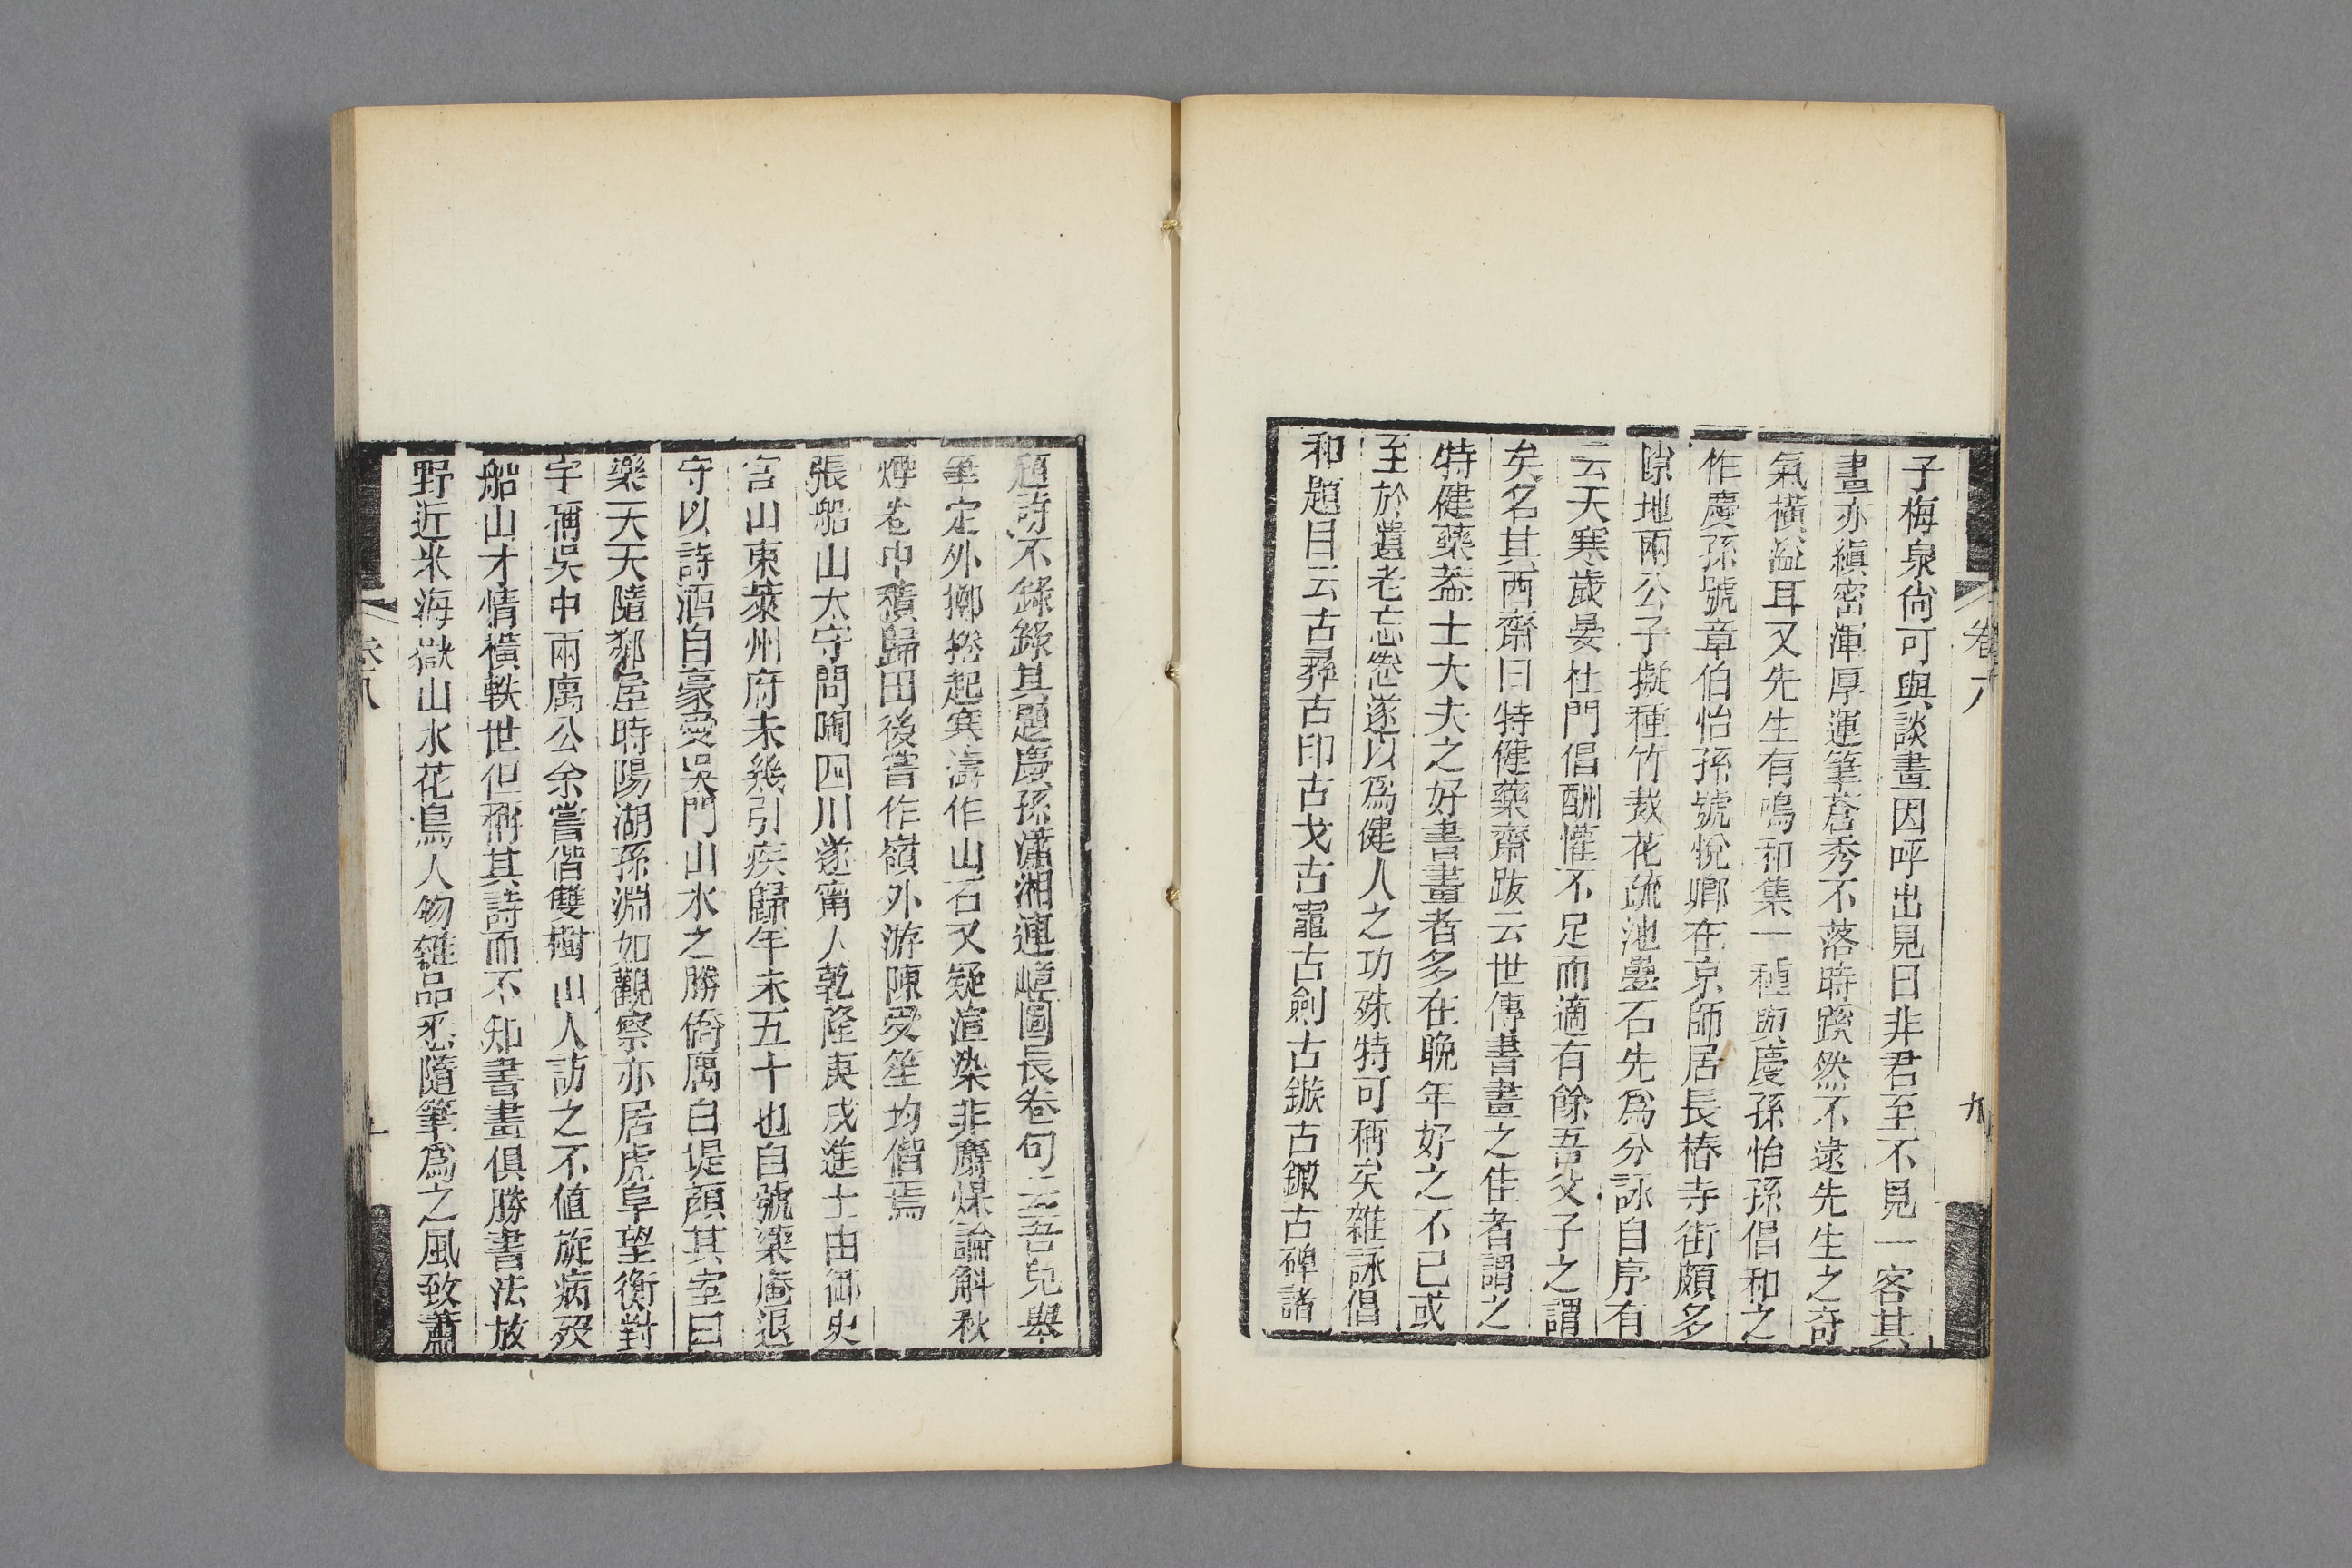 子梅泉尙可與談畫因呼出見曰非君至不見一客其
畫亦縝密渾厚運筆蒼秀不落時蹊然不逮先生之奇
氣橫溢耳又先生有鳴和集一種與慶孫怡孫倡和之
作慶孫號章伯怡孫號悅鄉在京師居長椿寺街頗多
隙地兩公子擬種竹栽花疏池疊石先爲分詠自序有
云天寒歲晏杜門倡酬懽不足而適有餘吾父子之謂
矣名其西齋曰特健藥齋跋云世傳書畫之佳者謂之
特健藥葢士大夫之好書畫者多在晩年好之不已或
至於遺老忘憊遂以爲健人之功殊特可稱矣雜詠倡
和題目云古彝古印古戈古竈古劍古鏃古鍬古碑諸
卷八
九
題詩不錄錄其題慶孫瀟湘連嶂圖長卷句云吾兒舉
筆定外擲捲起寒濤作山石又疑渲染非麝煤論斛秋
煙卷中積歸田後嘗作嶺外游陳受笙均偕焉
張船山太守問陶四川遂甯人乾隆庚戌進士由御史
官山東萊州府未幾引疾歸年未五十也自號藥庵退
守以詩酒自豪愛吳門山水之勝僑寓白堤顏其室曰
樂天天隨鄰屋時陽湖孫淵如觀察亦居虎阜望衡對
宇稱吳中兩寓公余嘗偕雙樹山人訪之不値旋病歿
船山才情橫軼世但稱其詩而不知書畫俱勝書法放
野近米海嶽山水花鳥人物雜品悉隨筆爲之風致蕭
卷八